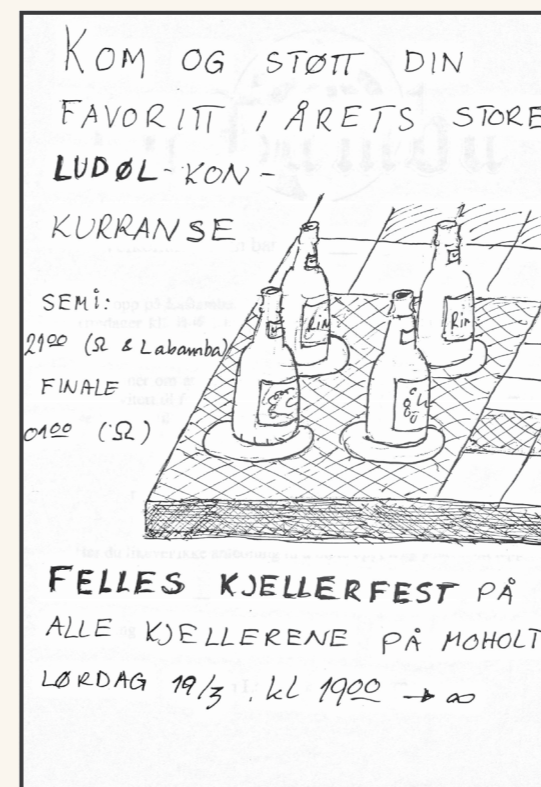 KOM OG STØTT DIN
FAVORITT I ÅRETS STORE
LUDØL-KON-
KURRANSE
SEMI:
21⁰⁰ (Ω & Labamba)
FINALE
01⁰⁰ (Ω)
Rin
Rin
FELLES KJELLERFEST PÅ
ALLE KJELLERENE PÅ MOHOLT
LØRDAG 19/3, kl 19⁰⁰ → ∞